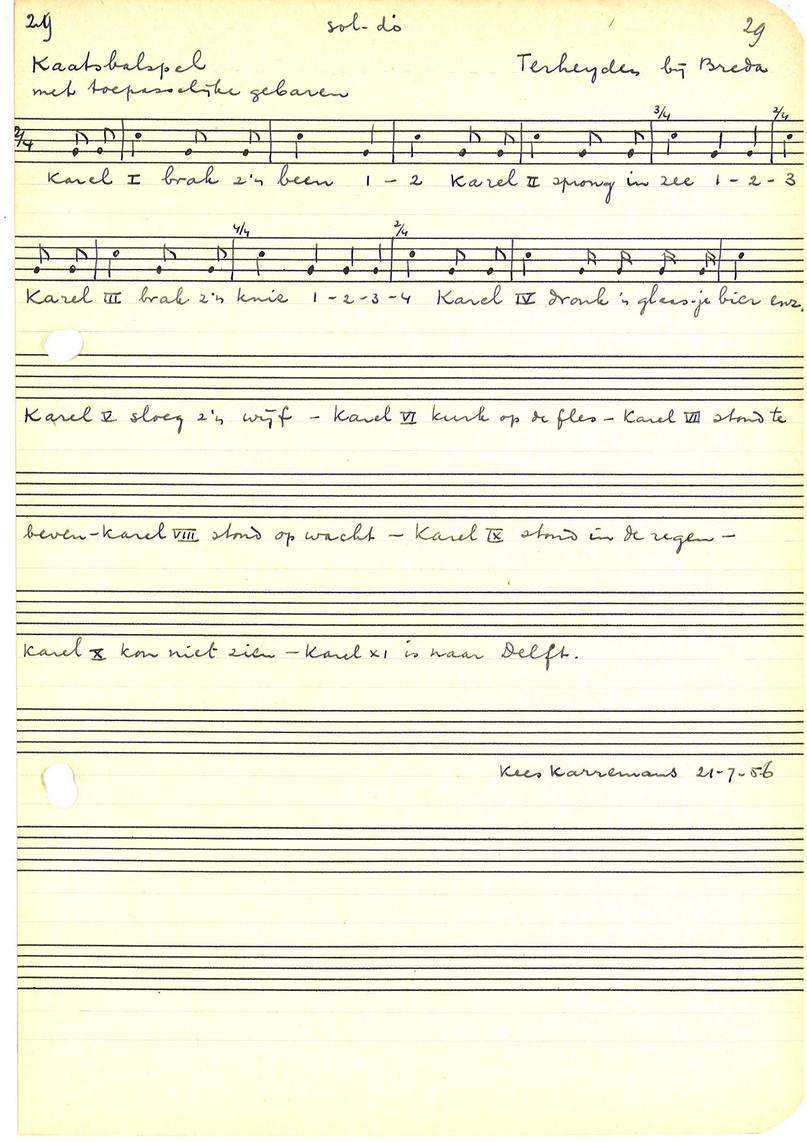 29 sol-do 29
Kaatsbalspel Terheyden bij Breda
met toepasselijke gebaren
2/4 3/4 2/4
Karel I brak z'n been 1 - 2 Karel II sprong in zee 1 - 2 - 3
4/4 2/4
Karel III brak z'n knie 1 - 2 - 3 - 4 Karel IV dronk 'n glaas-je bier enz.
Karel V sloeg z'n wijf - Karel VI kurk op de fles - Karel VII stond te
beven - Karel VIII stond op wacht - Karel IX stond in de regen -
Karel X kon niet zien - Karel XI is naar Delft.
Kees Karremans 21-7-56